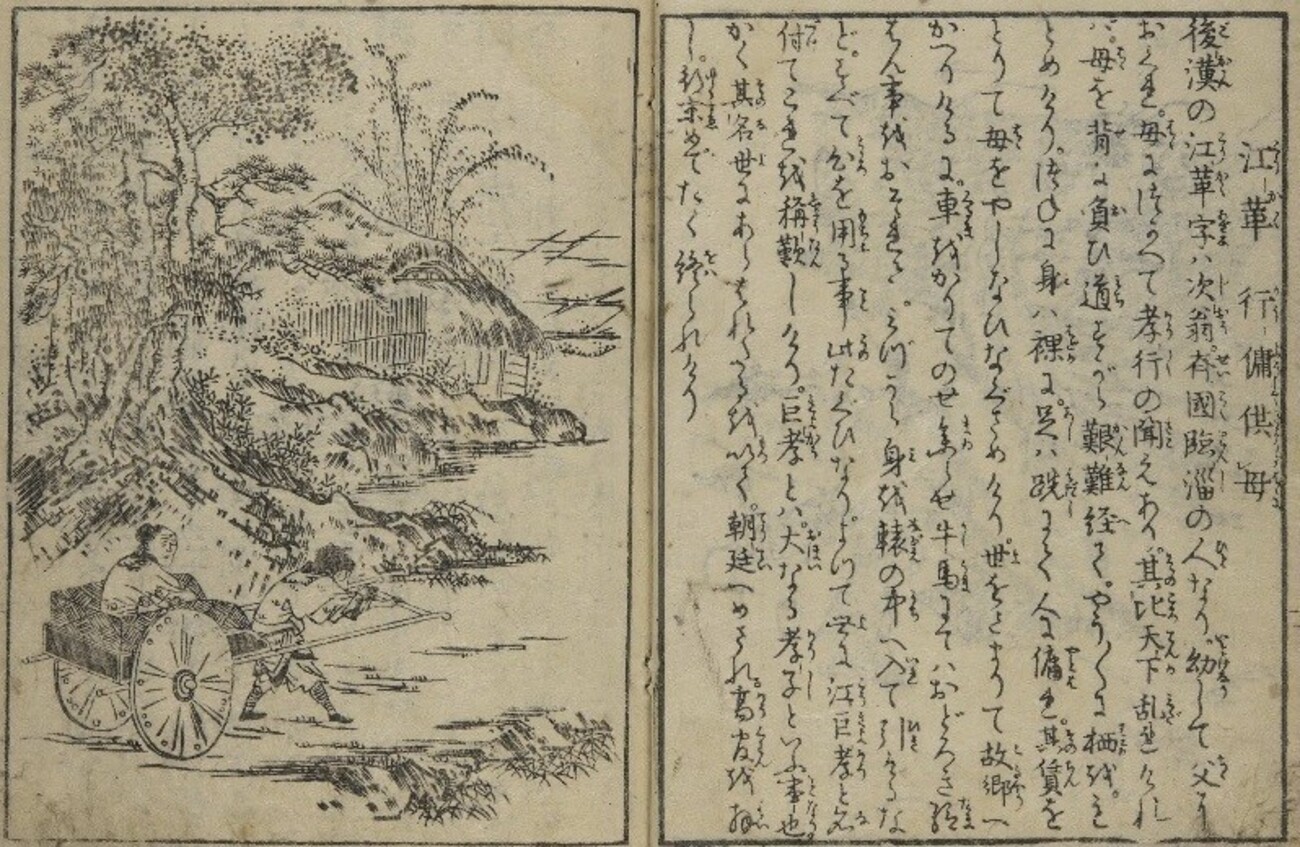 江革行傭供母
後漢の江革字ハ次翁斉國臨淄の人なり。幼して父に
おくれ。母につかへて孝行の聞えあり。其比天下乱れけれ
バ。母を背に負ひ道すがら艱難経て。やう〳〵に栖を。も
とめけり。つねに身ハ裸に。足ハ跣にて人に傭れ。其賃を
とりて母をやしなひなぐさめけり。世をさまりて故郷へ
かへりけるに。車をかりてのせ参らせ牛馬にてハおどろき給
はん事をおそれて。みづから身を轅の中へ入て引けるな
ど。すべて心を用る事此たぐひなり。よつて世に江巨孝と名
付てこれを稱歎しけり。巨孝とハ。大なる孝子といふ事也。
かく其名世にあらはれたるを以て。朝廷へめされ。高官を拝
し。めでたく終られけり